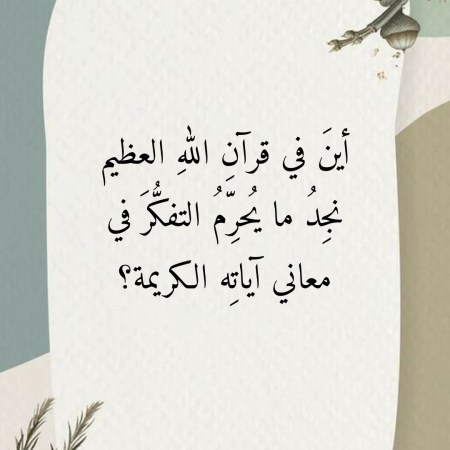 أينَ في قرآنِ اللهِ العظيم
نجِدُ ما يُحرِّمُ التفكُّرَ في
معاني آياتِه الكريمة؟